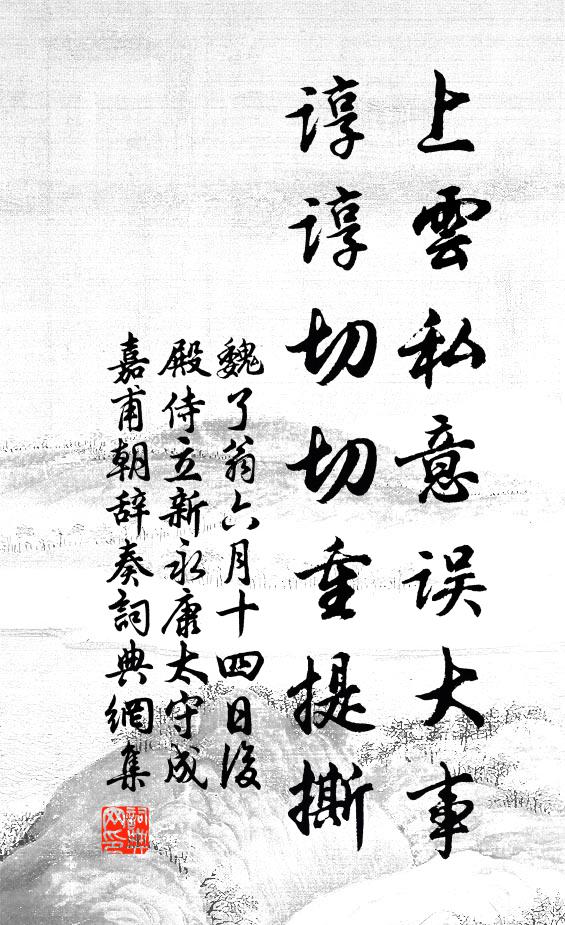 上雲私意误大事
谆谆切切重提撕
魏了翁六月十四日後
殿侍立新永康太守成
嘉甫朝辞奏詞典網集